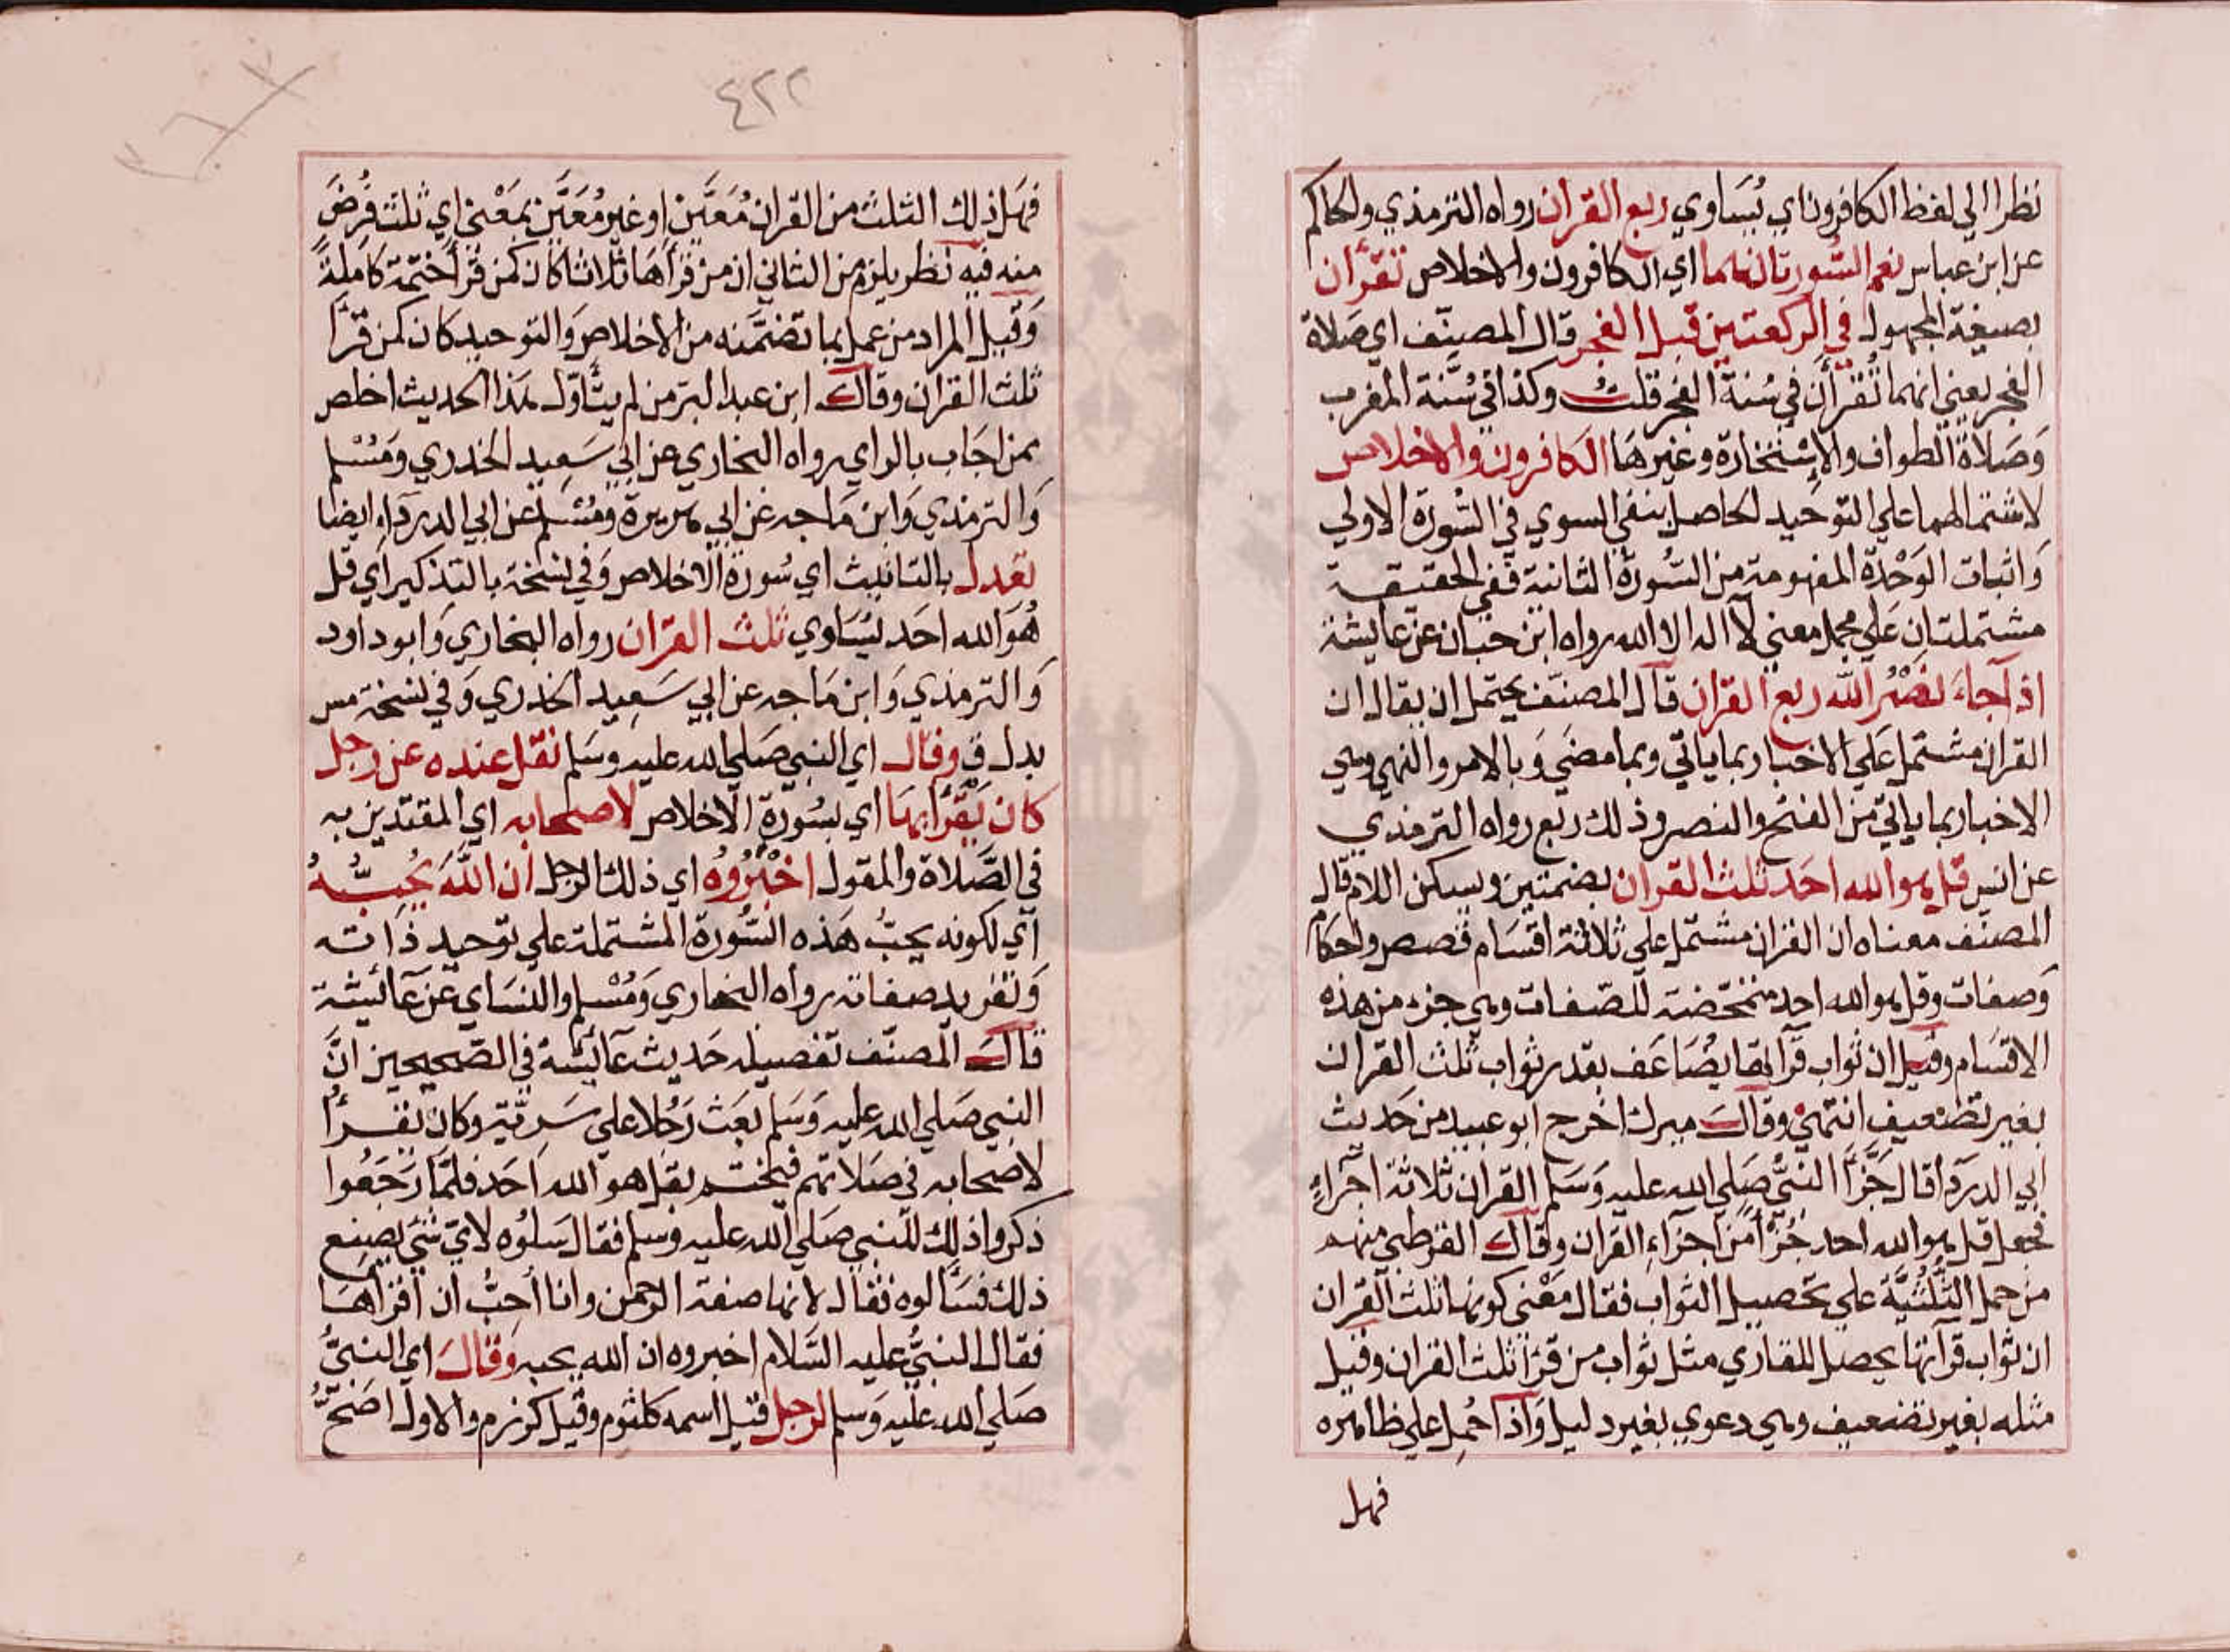 نظرا الي لفظ الكافرون اي يُسَاوي ربع القران رواه الترمذي والحاكم
عن ابن عباس نعم السُّورتان هما اي الكافرون والاخلاص تقرَأان
بصيغة المجهول في الركعتين قبل الفجر قال المصنِّف اي صَلاة
الفجر يعني انهما تُقرَأن في سُنة الفجر قلتُ وكذا في سُنَّة المغرب
وَصَلاة الطواف والاِسْتخارة وغيرهَا الكافرون والاخلاص
لاشتمالهما علي التوحيد الحاصل بنفي السوي في السُّورة الاولي
وَاثبات الوَحْدة المفهومة من السُّورة الثانية ففي الحقيقة
مشتملتان عَلي مجمل معني لا اله الا الله رواه ابن حبان عن عايشة
اذا جاءَ نصْرُ الله ربع القران قال المصنف يحتمل ان يقال ان
القران مشتمل عَلي الاخبار بما ياتي وبما مضَي وَبالامر والنهي وهي
الاخبار بما ياتي من الفتح والنصر وذلك ربع رواه الترمذي
عن انس قل هو الله احَد ثلث القران بضمتين ويسكن اللام قال
المصنف معناه ان القران مشتمل علي ثلاثة اقسَام قصص واحكام
وَصفات وقل هو الله احد متمحّضة للصّفات وهي جزء من هذه
الاقسَام وقيل ان ثواب قرأتها يُضَاعَف بقدر ثواب ثلث القران
بغير تضعيف انتهيٰ وقالَ ميرك اخرج ابو عبيد من حَديث
ابي الدردأ قال جَزَّأ النبيُّ صَلي الله عليه وَسَلم القران ثلاثة اجزاءٍ
فجعل قل هو الله احد جُزْأ من اجزاء القران وقالَ القرطبي منهم
من حمل الثلُثيَّة علي تحصيل الثواب فقال مَعْني كونها ثلث القران
ان ثواب قرآتها يحصل للقاري مثل ثواب من قرَا ثلث القران وقيل
مثله بغير تضعيف وهي دعوي بغير دليل وَاذا حُمل علي ظاهره
فهل
٤٢٢
فهَل ذلك الثلث من القران مُعَيَّن او غير مُعَيَّن بمَعْني اي ثلث فُرضَ
منه فيه نظر يلزم من الثاني ان من قرَأهَا ثلاثا كان كمن قرَأ ختمة كاملةً
وَقيل المراد من عمل بما تضمَّنه من الاخلاص وَالتوحيد كان كمن قرَأ
ثلث القران وقالَ ابن عبد البر من لم يتأوّل هذا الحديث اخلص
ممن اجَاب بالراي رواه البخاري عن ابي سَعيد الخدري وَمُسْلم
وَالترمذي وَابن مَاجه عن ابي هريرة ومُسْلم عن ابي الدردَاء ايضا
تعدل بالتانيث اي سُورة الاخلاص وَفي نسخة بالتذكير اي قل
هُوَ الله احَد يُسَاوي ثلث القران رواه البخاري وَابو داود
وَالترمذي وَابن مَاجه عن ابي سَعِيد الخدري وَفي نسخة مس
بدل ق وقال اي النبي صَلي الله عليه وسَلم نقل عنده عن رجل
كان يَقْرَأ بهَا اي بسُورة الاخلاص لاصحابه اي المقتدين به
في الصَّلاة والمقول اخْبُرُوه اي ذلك الرجل ان اللهَ يُحبُّهُ
اي لكونه يحبُّ هَذه السُّورة المشتملة علي توحيد ذاته
وَتفريد صفاته رواه البخاري وَمُسْلم والنسَاي عن عآئيشة
قالَ المصنّف تفصيله حَديث عآئشة في الصّحيحين انَّ
النبي صَلي الله عليه وَسَلم بَعَث رَجُلا علي سَريّة وكان يقرأُ
لاصحابه في صَلاتهم فيختم بقل هو الله احَد فلمَّا رَجَعُوا
ذكروا ذلك للنبي صَلي الله عليه وسلم فقال سَلوُه لايّ شَي يصنع
ذلك فسَألوه فقال لانها صفة الرحمن وانا أحِبُّ ان اقرَاهَا
فقال النبيُّ عليه السَّلام اخبروه ان الله يحبه وَقالَ اي النبيُّ
صَلي الله عَليه وَسلم لرجل قيل اسمه كلثوم وقيل كرزم والاول اصَحُّ